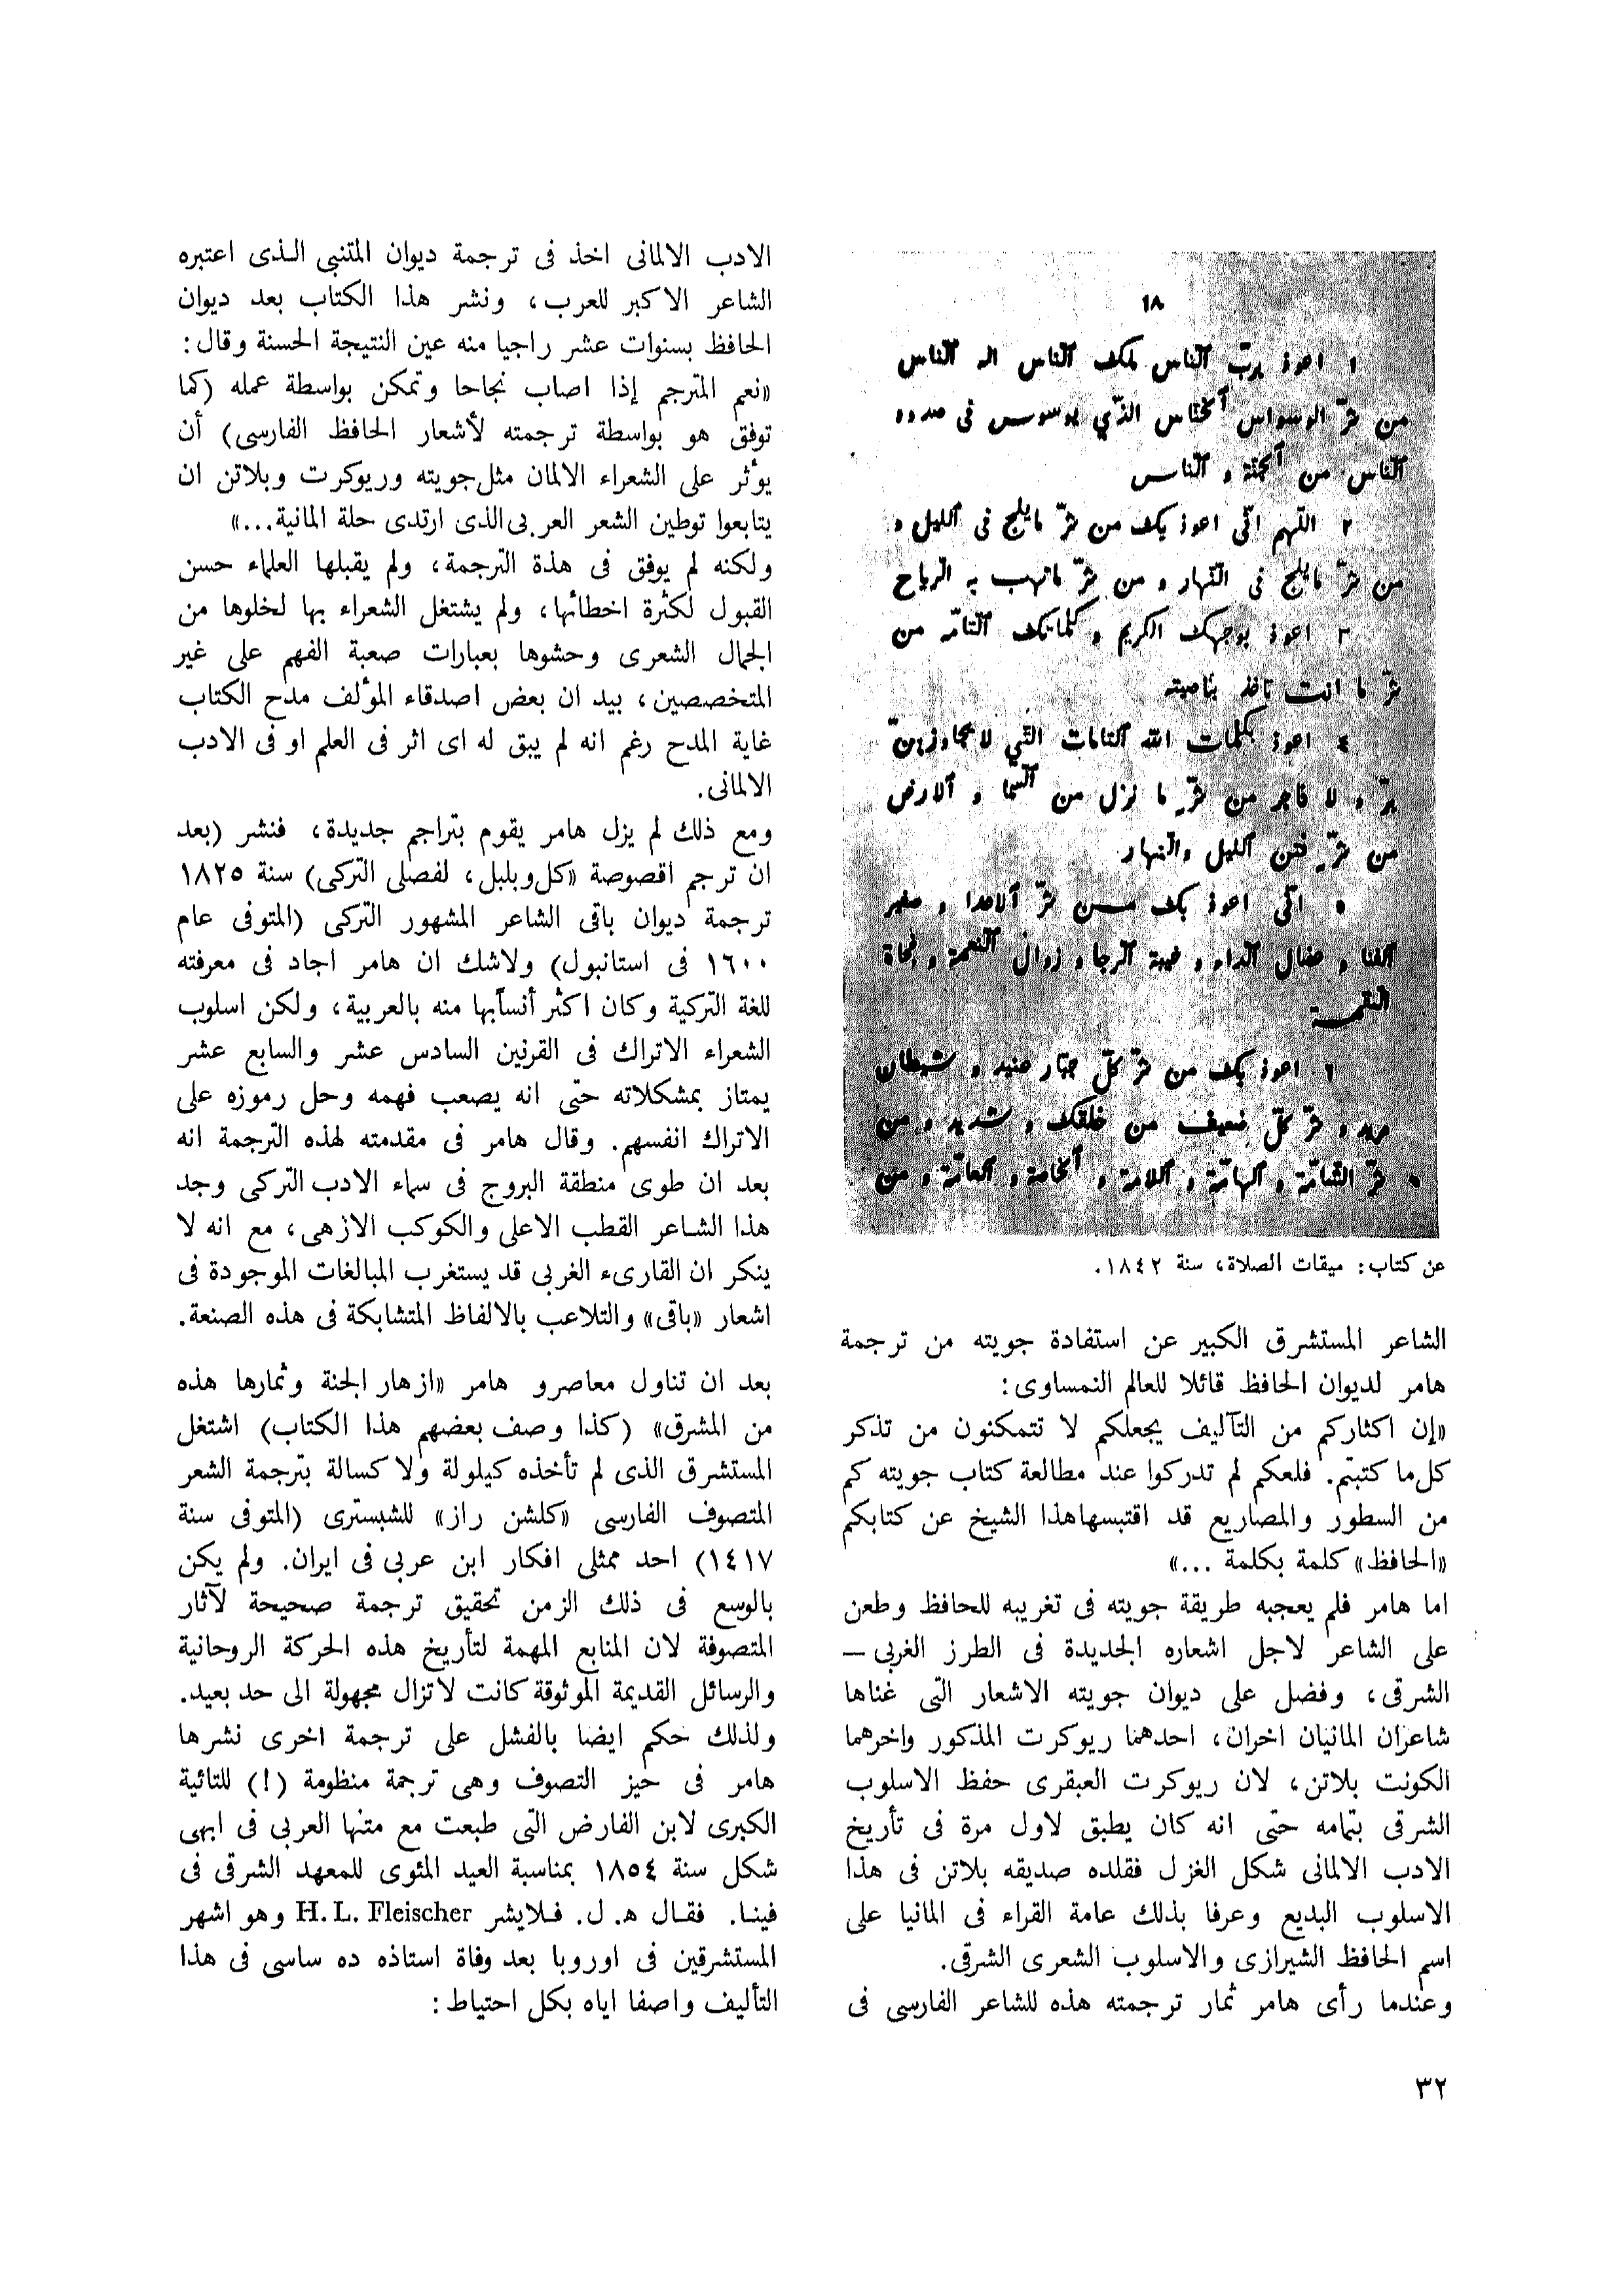 ١٨
١ اعوذ بربّ الناس ملك الناس اله الناس
من شرّ الوسواس الخنّاس الذّي يوسوس فى صدور
الناس من الجنّة و الناس
٢ اللّهم انّى اعوذ بك من شرّ ما يلج فى الليل و
من شرّ ما يلج فى النهار و من شرّ ما تهب به الرياح
٣ اعوذ بوجهك الكريم و كلماتك التامّه من
شرّ ما انت بناصيته
٤ اعوذ بكلمات الله التامات التّي لا يجاوزهنّ
برّ و لا فاجر من شرّ ما نزل من السما و الارض
من شرّ فتن الليل والنهار
٥ انّى اعوذ بك من شرّ الاعدا و
و عضال الداء و خيبة الرجا و زوال النعمة و فجاة
النقمـة
٦ اعوذ بك من شرّ كلّ جبّار عنيد و شيطان
مريد و شرّ كلّ ضعيف من خلقك و شديد و من
شرّ السّامّة و الهامّة و اللامة و الخاصة و العامّة و من
عن كتاب: ميقات الصلاة، سنة ١٨٤٢.
الشاعر المستشرق الكبير عن استفادة جويته من ترجمة
هامر لديوان الحافظ قائلا للعالم النمساوى:
«إن اكثاركم من التآليف يجعلكم لا تتمكنون من تذكر
كل ما كتبتم. فلعكم لم تدركوا عند مطالعة كتاب جويته كم
من السطور والمصاريع قد اقتبسها هذا الشيخ عن كتابكم
«الحافظ» كلمة بكلمة ...»
اما هامر فلم يعجبه طريقة جويته فى تغريبه للحافظ وطعن
على الشاعر لاجل اشعاره الجديدة فى الطرز الغربى –
الشرقى، وفضل على ديوان جويته الاشعار التى غناها
شاعران المانيان اخران، احدهما ريوكرت المذكور واخرهما
الكونت بلاتن، لان ريوكرت العبقرى حفظ الاسلوب
الشرقى بتمامه حتى انه كان يطبق لاول مرة فى تأريخ
الادب الالمانى شكل الغزل فقلده صديقه بلاتن فى هذا
الاسلوب البديع وعرفا بذلك عامة القراء فى المانيا على
اسم الحافظ الشيرازى والاسلوب الشعرى الشرقى.
وعندما رأى هامر ثمار ترجمته هذه للشاعر الفارسى فى
الادب الالمانى اخذ فى ترجمة ديوان المتنبى الـذى اعتبره
الشاعر الاكبر للعرب، ونشر هذا الكتاب بعد ديوان
الحافظ بسنوات عشر راجيا منه عين النتيجة الحسنة وقال:
«نعم المترجم إذا اصاب نجاحا وتمكن بواسطة عمله (كما
توفق هو بواسطة ترجمته لأشعار الحافظ الفارسى) أن
يوٴثر على الشعراء الالمان مثل جويته وريوكرت وبلاتن ان
يتابعوا توطين الشعر العربى الذى ارتدى حلة المانية...»
ولكنه لم يوفق فى هذة الترجمة، ولم يقبلها العلماء حسن
القبول لكثرة اخطائها، ولم يشتغل الشعراء بها لخلوها من
الجمال الشعرى وحشوها بعبارات صعبة الفهم على غير
المتخصصين، بيد ان بعض اصدقاء الموٴلف مدح الكتاب
غاية المدح رغم انه لم يبق له اى اثر فى العلم او فى الادب
الالمانى.
ومع ذلك لم يزل هامر يقوم بتراجم جديدة، فنشر (بعد
ان ترجم اقصوصة «كل وبلبل، لفصلى التركى) سنة ١٨٢٥
ترجمة ديوان باقى الشاعر المشهور التركى (المتوفى عام
١٦٠٠ فى استانبول) ولاشك ان هامر اجاد فى معرفته
للغة التركية وكان اكثر أنساًبها منه بالعربية، ولكن اسلوب
الشعراء الاتراك فى القرنين السادس عشر والسابع عشر
يمتاز بمشكلاته حتى انه يصعب فهمه وحل رموزه على
الاتراك انفسهم. وقال هامر فى مقدمته لهذه الترجمة انه
بعد ان طوى منطقة البروج فى سماء الادب التركى وجد
هذا الشاعر القطب الاعلى والكوكب الازهى، مع انه لا
ينكر ان القارىء الغربى قد يستغرب المبالغات الموجودة فى
اشعار «باقى» والتلاعب بالالفاظ المتشابكة فى هذه الصنعة.
بعد ان تناول معاصرو هامر «ازهار الجنة وثمارها هذه
من المشرق» (كذا وصف بعضهم هذا الكتاب) اشتغل
المستشرق الذى لم تأخذه كيلولة ولا كسالة بترجمة الشعر
المتصوف الفارسى «كلشن راز» للشبسترى (المتوفى سنة
١٤١٧) احد ممثلى افكار ابن عربى فى ايران. ولم يكن
بالوسع فى ذلك الزمن تحقيق ترجمة صحيحة لآثار
المتصوفة لان المنابع المهمة لتأريخ هذه الحركة الروحانية
والرسائل القديمة الموثوقة كانت لاتزال مجهولة الى حد بعيد.
ولذلك حكم ايضا بالفشل على ترجمة اخرى نشرها
هامر فى حيز التصوف وهى ترجمة منظومة (!) للتائية
الكبرى لابن الفارض التى طبعت مع متنها العربى فى ابهى
شكل سنة ١٨٥٤ بمناسبة العيد المئوى للمعهد الشرقى فى
فينا. فقال ه. ل. فلايشر H. L. Fleischer وهو اشهر
المستشرقين فى اوروبا بعد وفاة استاذه ده ساسى فى هذا
التأليف واصفا اياه بكل احتياط:
٣٢